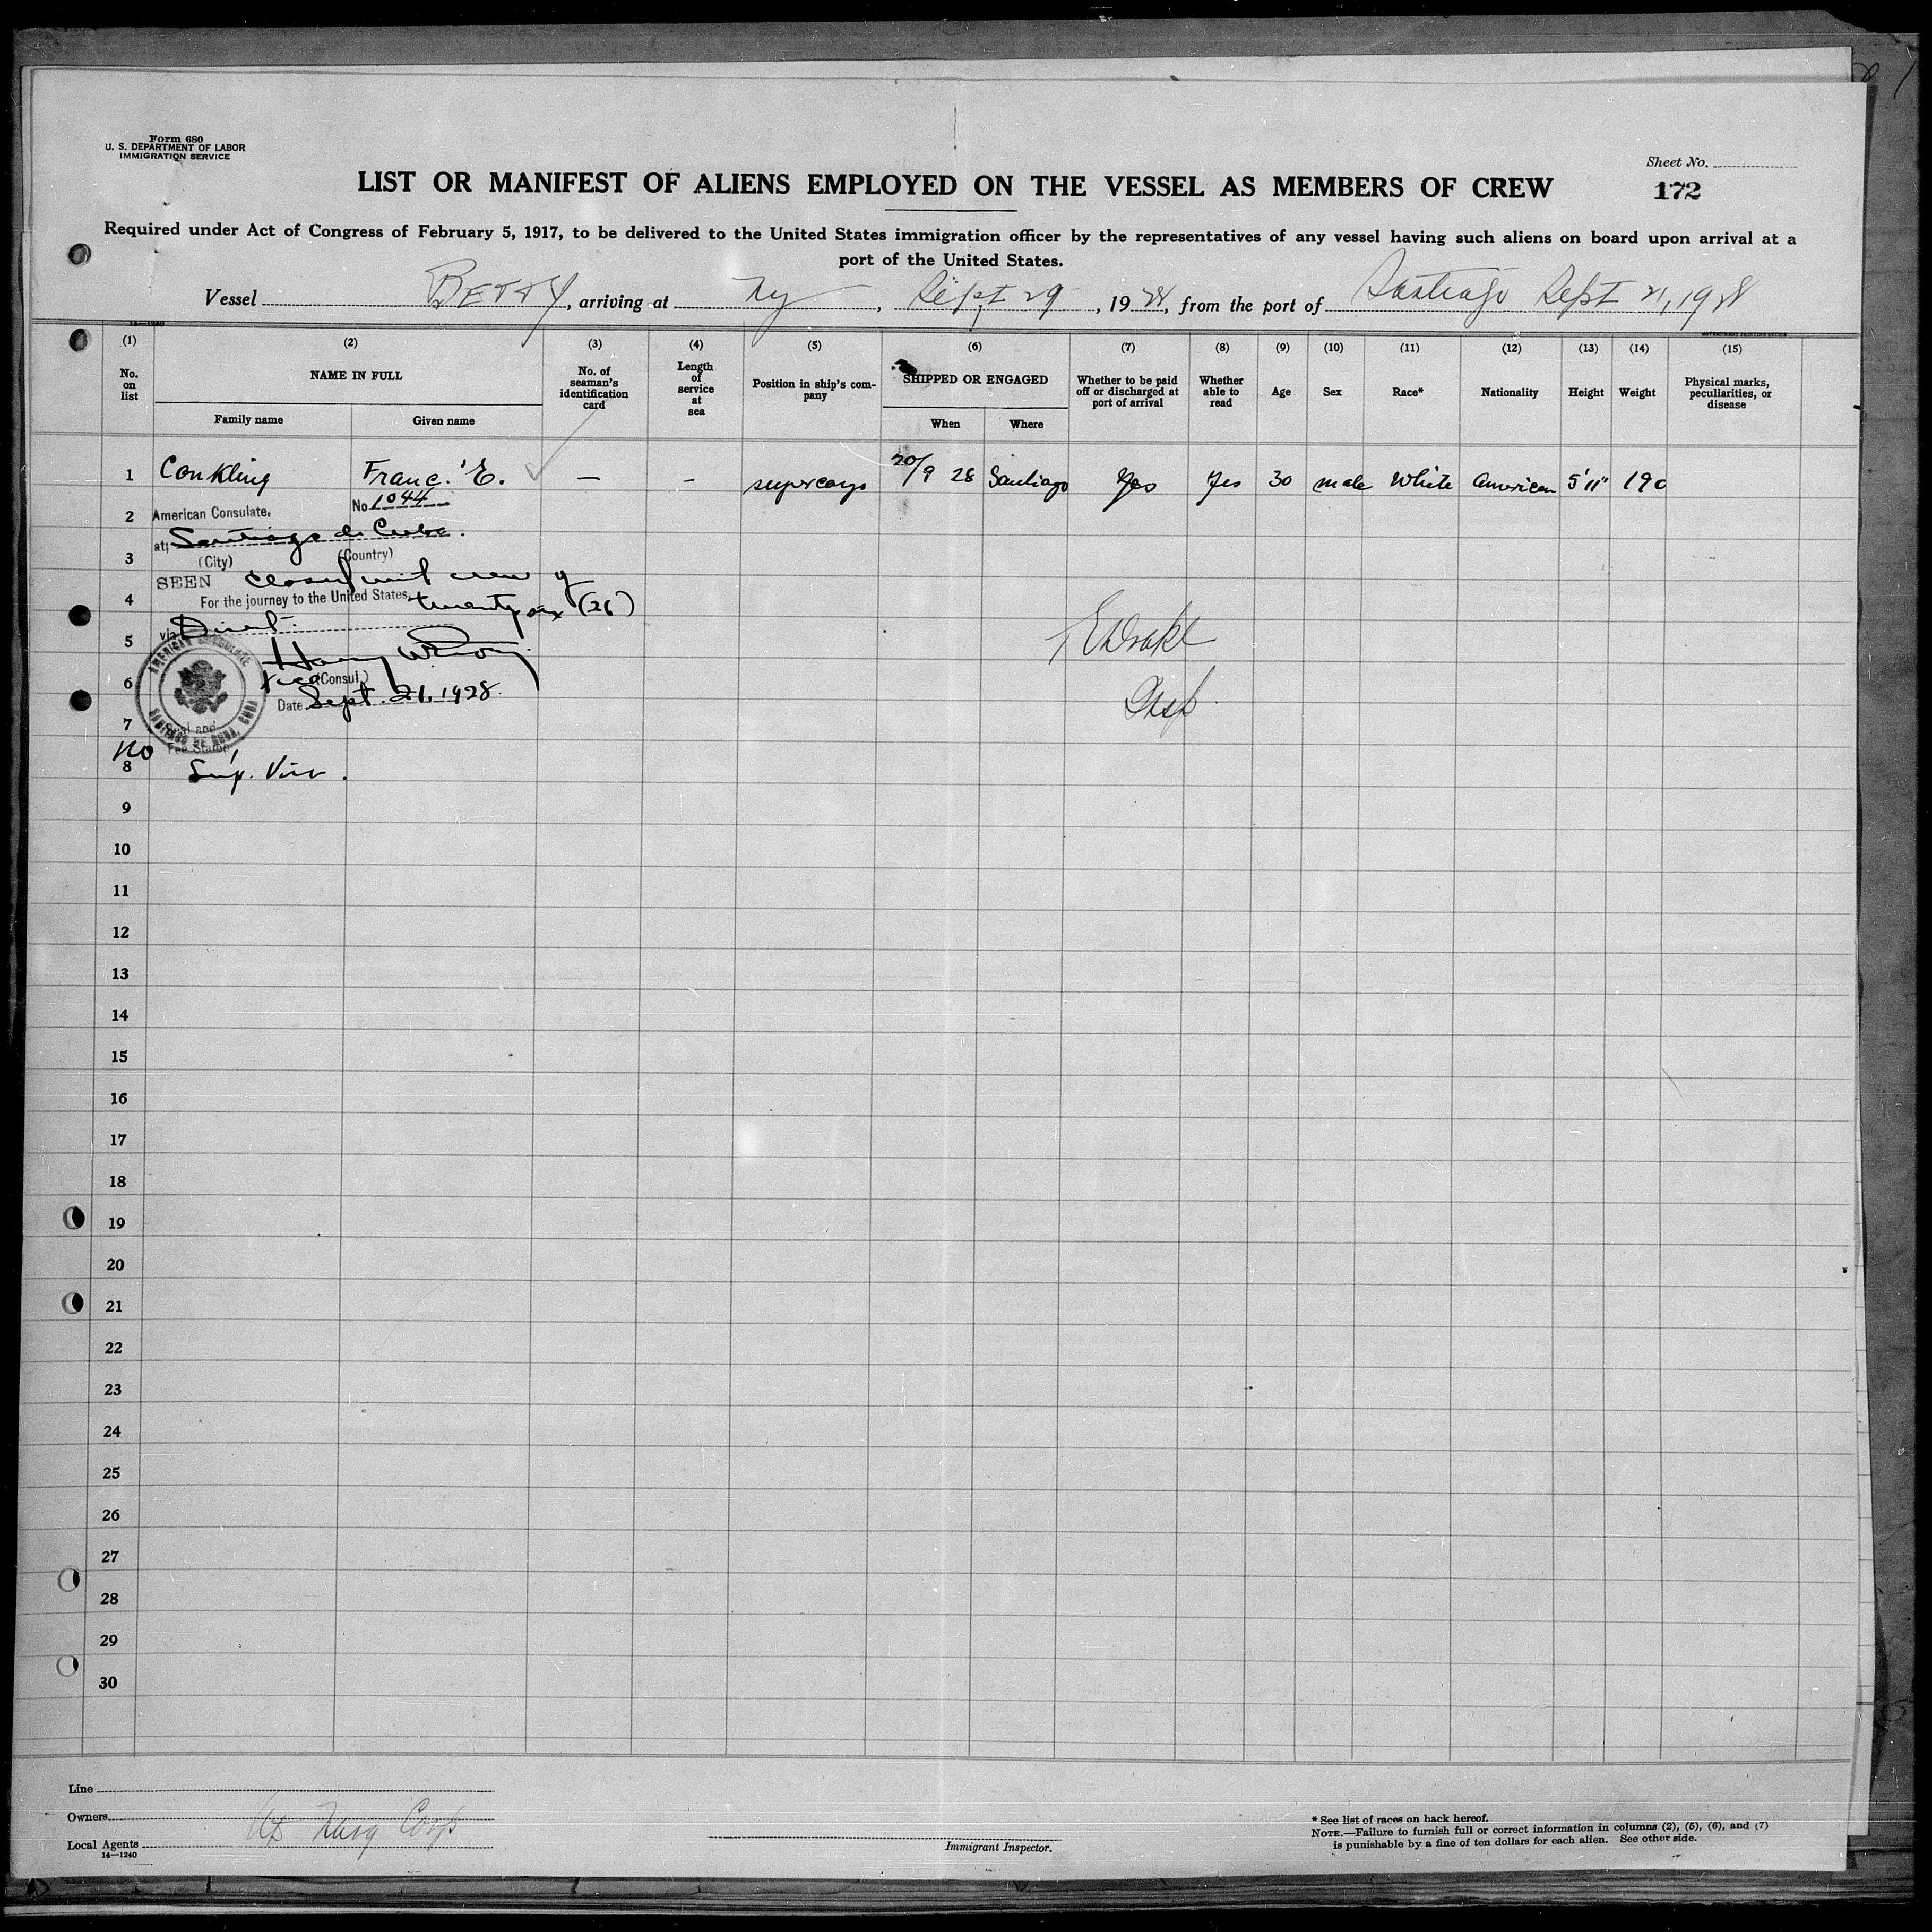 Form 680
U. S. DEPARTMENT OF LABOR
IMMIGRATION SERVICE
Sheet No.
172
LIST OR MANIFEST OF ALIENS EMPLOYED ON THE VESSEL AS MEMBERS OF CREW
Required under Act of Congress of February 5, 1917, to be delivered to the United States immigration officer by the representatives of any vessel having such aliens on board upon arrival at a
port of the United States.
Vessel BETTY, arriving at Ny, Sept 29, 1928, from the port of Santiago Sept 21, 1928
14—1240
GOVERNMENT PRINTING OFFICE
(1) (2) (3) (4) (5) (6) (7) (8) (9) (10) (11) (12) (13) (14) (15)
No. on list
NAME IN FULL
Family name
Given name
No. of seaman's identification card
Length of service at sea
Position in ship's company
SHIPPED OR ENGAGED
When
Where
Whether to be paid off or discharged at port of arrival
Whether able to read
Age
Sex
Race*
Nationality
Height
Weight
Physical marks, peculiarities, or disease
1 Conkling Franc. E. — — supercargo 20/9 28 Santiago Yes Yes 30 male White American 5'11" 190
No 1044
2 American Consulate.
at Santiago de Cuba.
3 (City) (Country)
SEEN crew of
4 For the journey to the United States, twenty six (26)
via Direct.
5
Vice (Consul)
6
Date Sept. 21, 1928.
AMERICAN CONSULATE
SANTIAGO DE CUBA, CUBA
Seal and
Fee Stamp
EWDrake
Insp
7
No
8 Sup. Visa.
9
10
11
12
13
14
15
16
17
18
19
20
21
22
23
24
25
26
27
28
29
30
Line
Owners
Local Agents
14—1240
Corp
Immigrant Inspector.
* See list of races on back hereof.
NOTE.—Failure to furnish full or correct information in columns (2), (5), (6), and (7)
is punishable by a fine of ten dollars for each alien. See other side.